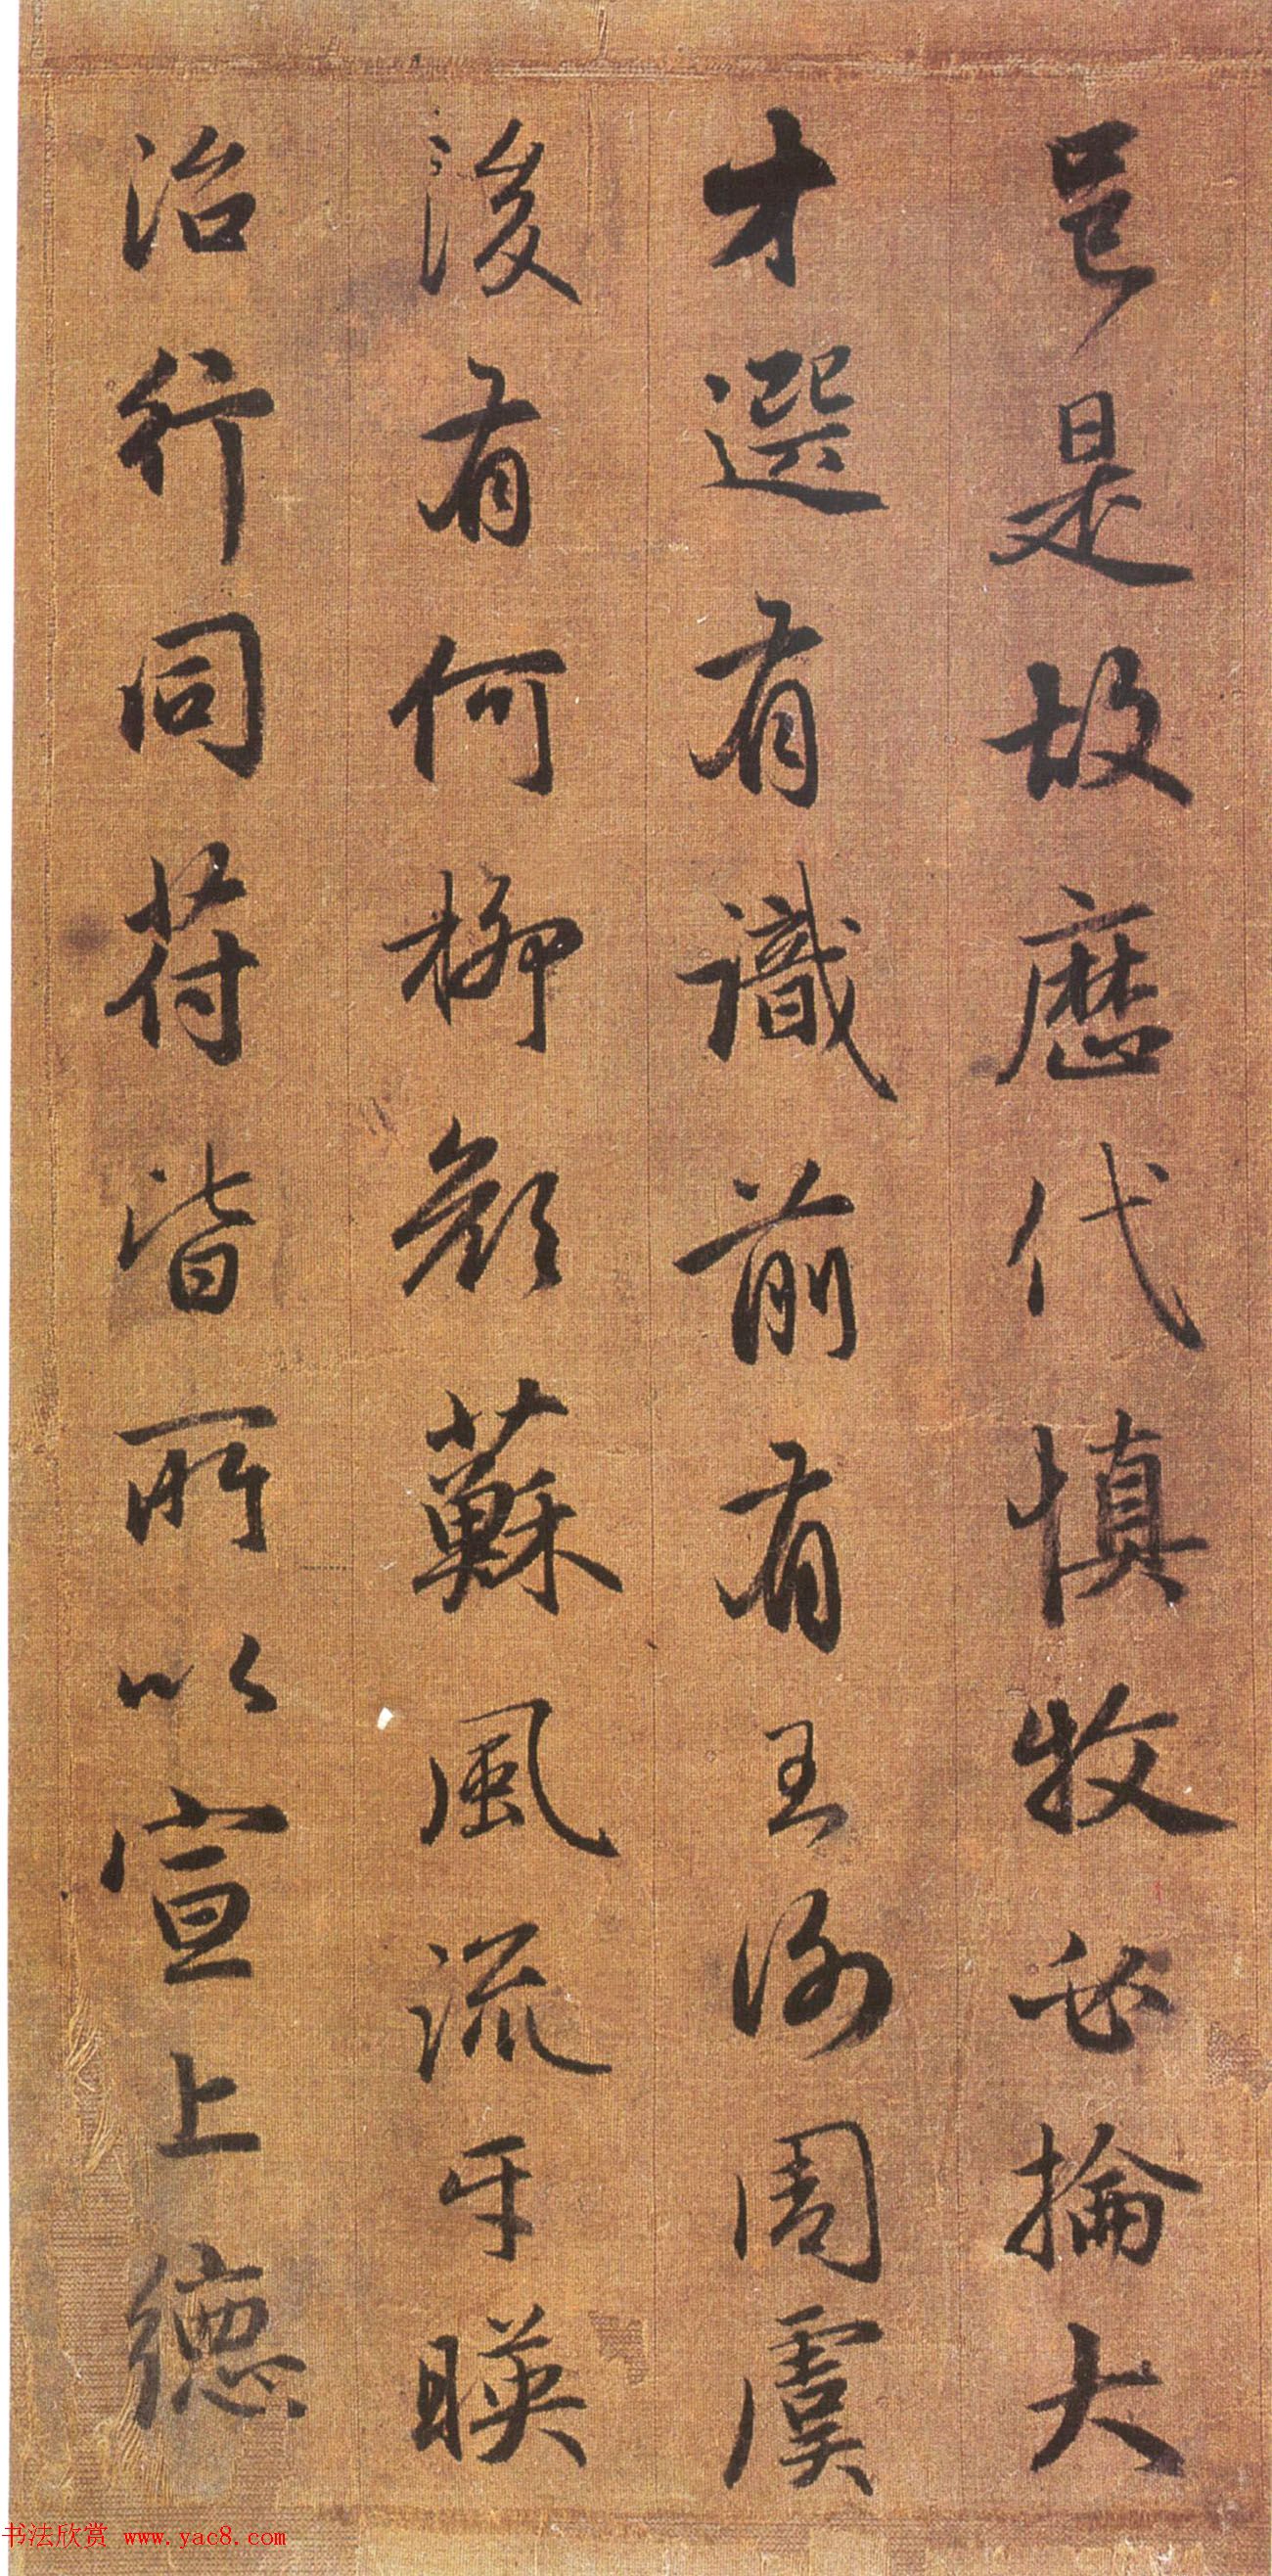 邑是故歷代慎牧必掄大
才選有識前有王謝周虞
後有何柳顏蘇風流乎暎
治行同苻皆所以宣上德
书法欣赏 www.yac8.com